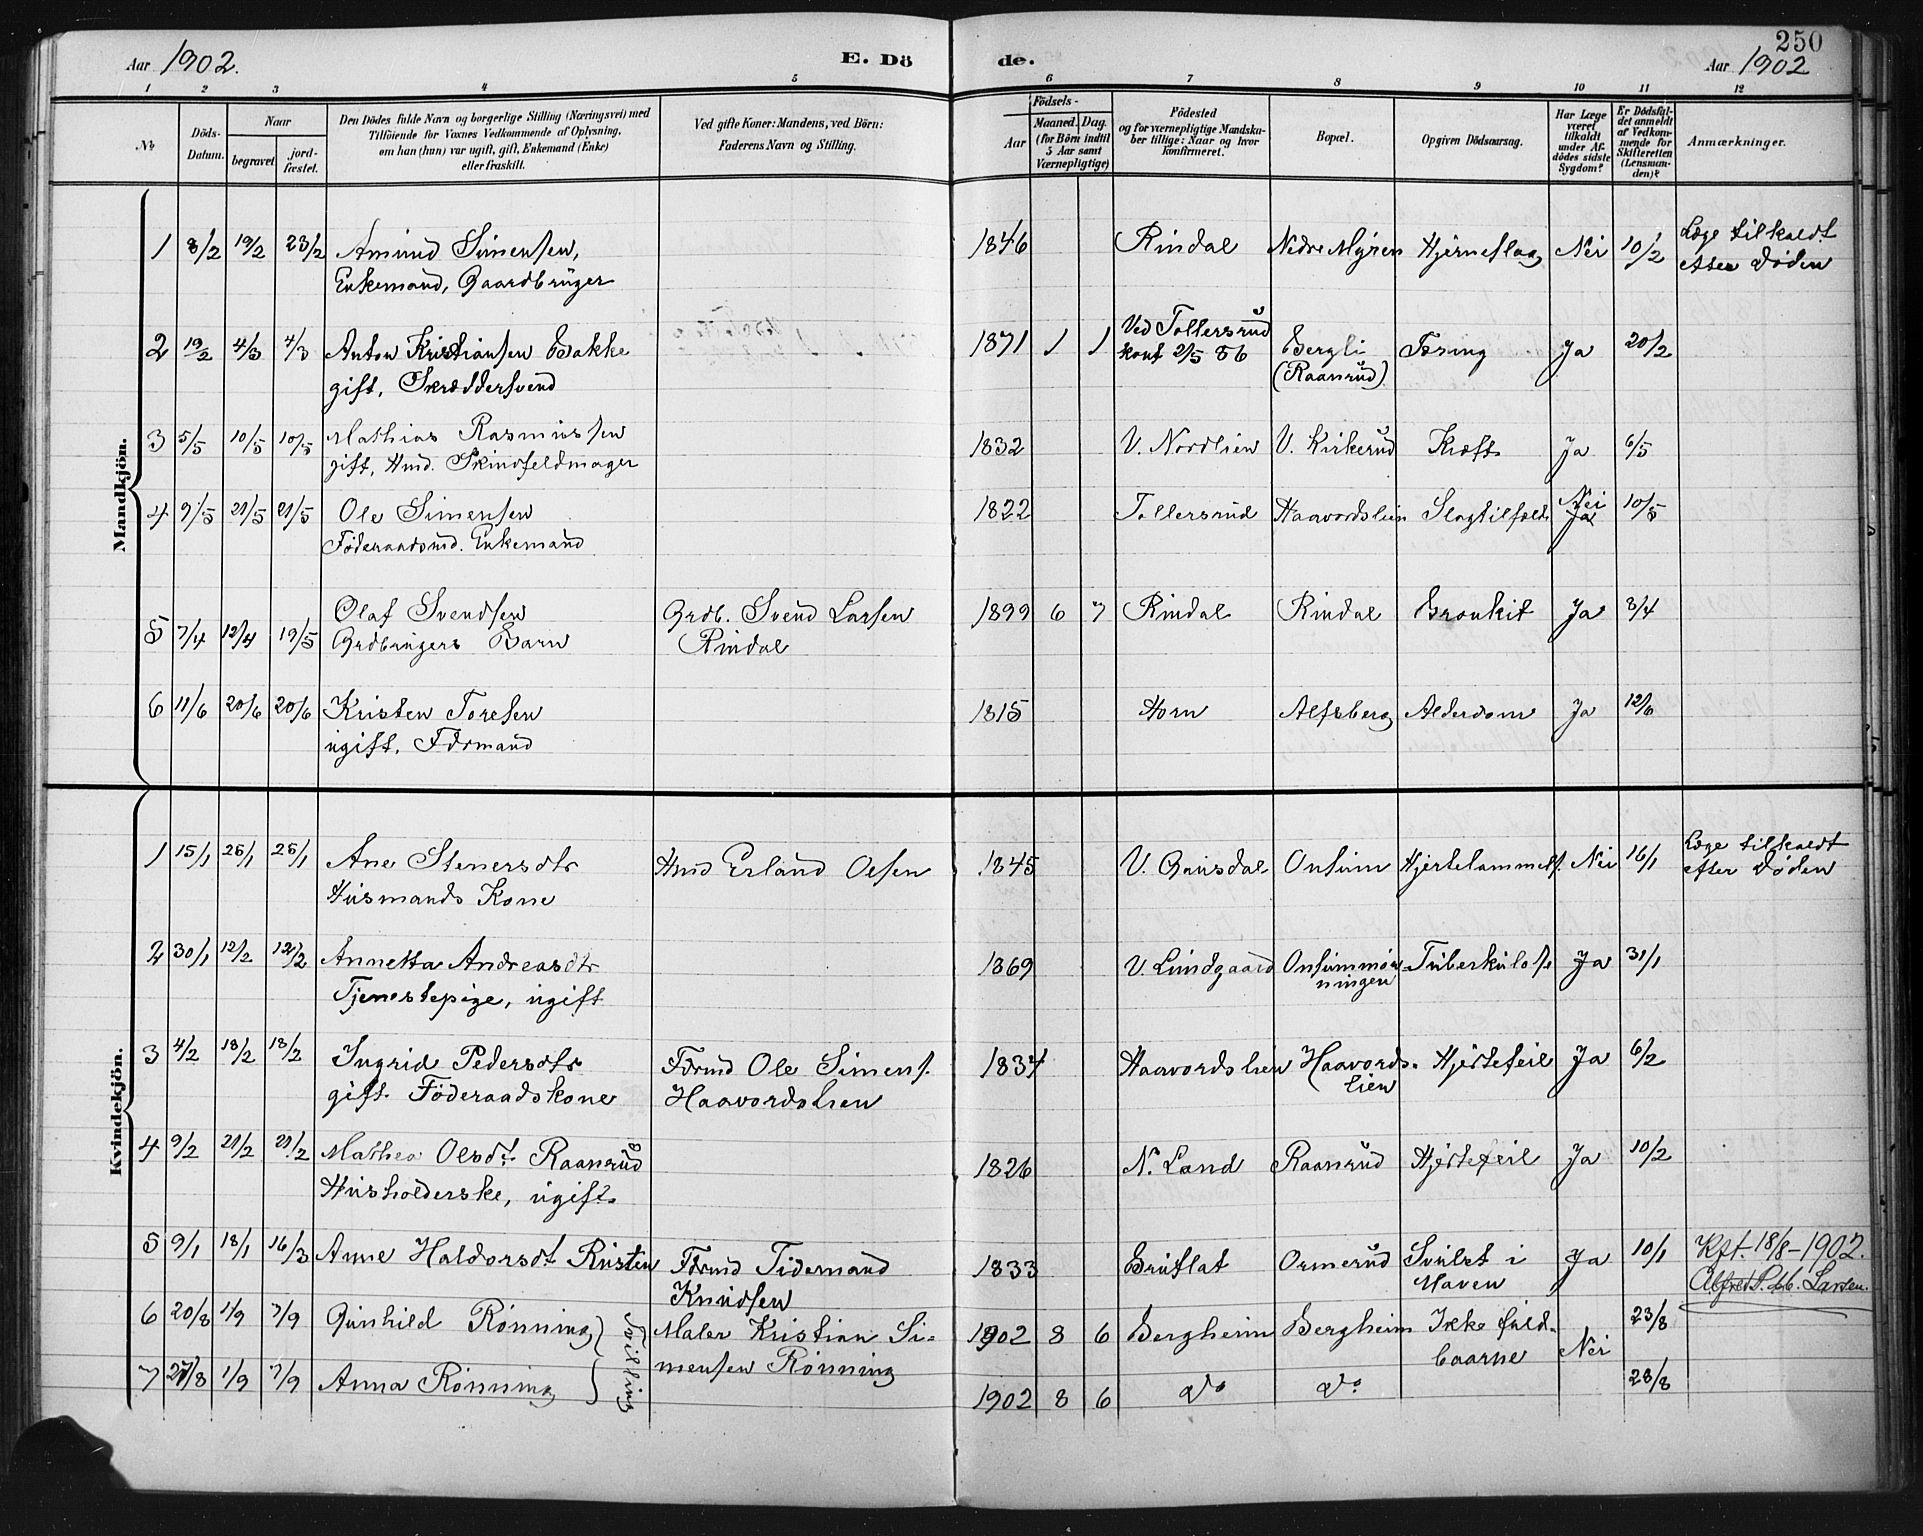 250
Aar 1902. E. Dö de. Aar 1902
1 2 3 4 5 6 7 8 9 10 11 12
№
Döds-Datum.
Naar
begravet.
jord-fæstet.
Den Dödes fulde Navn og borgerlige Stilling (Næringsvei) med
Tilföiende for Voxnes Vedkommende af Oplysning,
om han (hun) var ugift, gift, Enkemand (Enke)
eller fraskilt.
Ved gifte Koner: Mandens, ved. Börn:
Faderens Navn og Stilling.
Födsels-
Aar
Maaned. Dag.
(for Börn indtil
5 Aar samt
Værnepligtige)
Födested
og for værnepligtige Mandska-
ber tillige: Naar og hvor
konfirmeret.
Bopæl.
Opgiven Dödsaarsag.
Har Læge
været
tilkaldt
under Af-
dödes sidste
Sygdom?
Er Dödsfal-
det anmeldt
af Vedkom-
mende for
Skifteretten
(Lensman-
den)?
Anmærkninger.
Mandkjön.
1 8/2 19/2 23/2 Amund Simensen, 1846 Rindal Nedre Myren Hjerneslag Nei 10/2 Læge tilkaldt
Enkemand, Gaardbruger efter Døden
2 19/2 4/3 4/3 Anton Kristiansen Bakke 1871 1 1 Ved Tollersrud Bergli Tæring Ja 20/2
gift, Skræddersvend konf 2/5 86 (Raanrud)
3 5/5 10/5 10/5 Mathias Rasmussen 1832 V. Nordlien V. Kirkerud Kræft Ja 6/5
gift, Hmd. Skindfeldmager
4 9/5 21/5 21/5 Ole Simensen 1822 Tollersrud Haavordslien Slagtilfæld. Nei Ja 10/5
Föderaadsmd. Enkemand
5 7/4 12/4 19/5 Olaf Svendsen Grdb. Svend Larsen 1899 6 7 Rindal Rindal Bronkit Ja 8/4
Grdbrugers Barn Rindal
6 11/6 20/6 20/6 Kristen Toresen 1815 Horn Alfsberg Alderdom Ja 12/6
ugift, Fdrmand
Kvindekjön.
1 15/1 26/1 26/1 Ane Stenersdtr Hmd Erland Olsen 1845 V. Gausdal Onsum Hjertelammels. Nei 16/1 Læge tilkaldt
Husmands Kone efter Døden
2 30/1 12/2 12/2 Annetta Andreasdtr 1869 V. Lundgaard Onsummør- Tuberkulose Ja 31/1
Tjenestepige, ugift ningen
3 4/2 18/2 18/2 Ingrid Pedersdtr Fdrmd Ole Simens. 1834 Haavordslien Haavords- Hjertefeil Ja 6/2
gift. Föderaadskone Haavordslien lien
4 9/2 21/2 21/2 Mathea Olsdt. Raanrud 1826 N. Land Raanrud Hjertefeil Ja 10/2
Husholderske, ugift.
5 9/1 18/1 16/3 Anne Haldorsdt. Rusten Fdrmd Tidemand 1833 Bruflat Ormerud Svulst i Ja 10/1 Kft. 18/8-1902.
Knudsen Maven Larsen.
6 20/8 1/9 7/9 Gunhild Rønning Maler Kristian Si- 1902 8 6 Bergheim Bergheim Ikke fuld- Nei 23/8
Tvilling mensen Rønning baarne
7 27/8 1/9 7/9 Anna Rønning 1902 8 6 Do Do 28/8